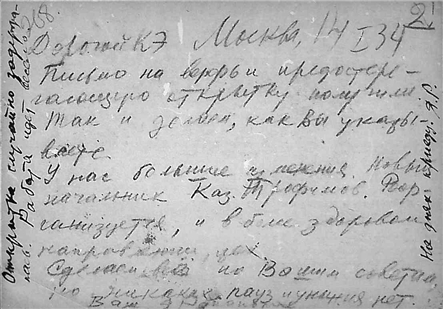 2
Дорогой КЭ Москва, 14 I 34
Письмо на
гающую открытку получили
Так и делаем, как Вы указы
ваете.
У нас большие изменения. Новый
начальник Каз. Трофимов. Реор
ганизуется, и в более здоровом
направлении,
Сделаем всё по Вашим советам,
но никаких пауз уныния нет.
Ваш
Открытка случайно задерж
лась. Работа идет
268
На днях приеду! Я.Р.